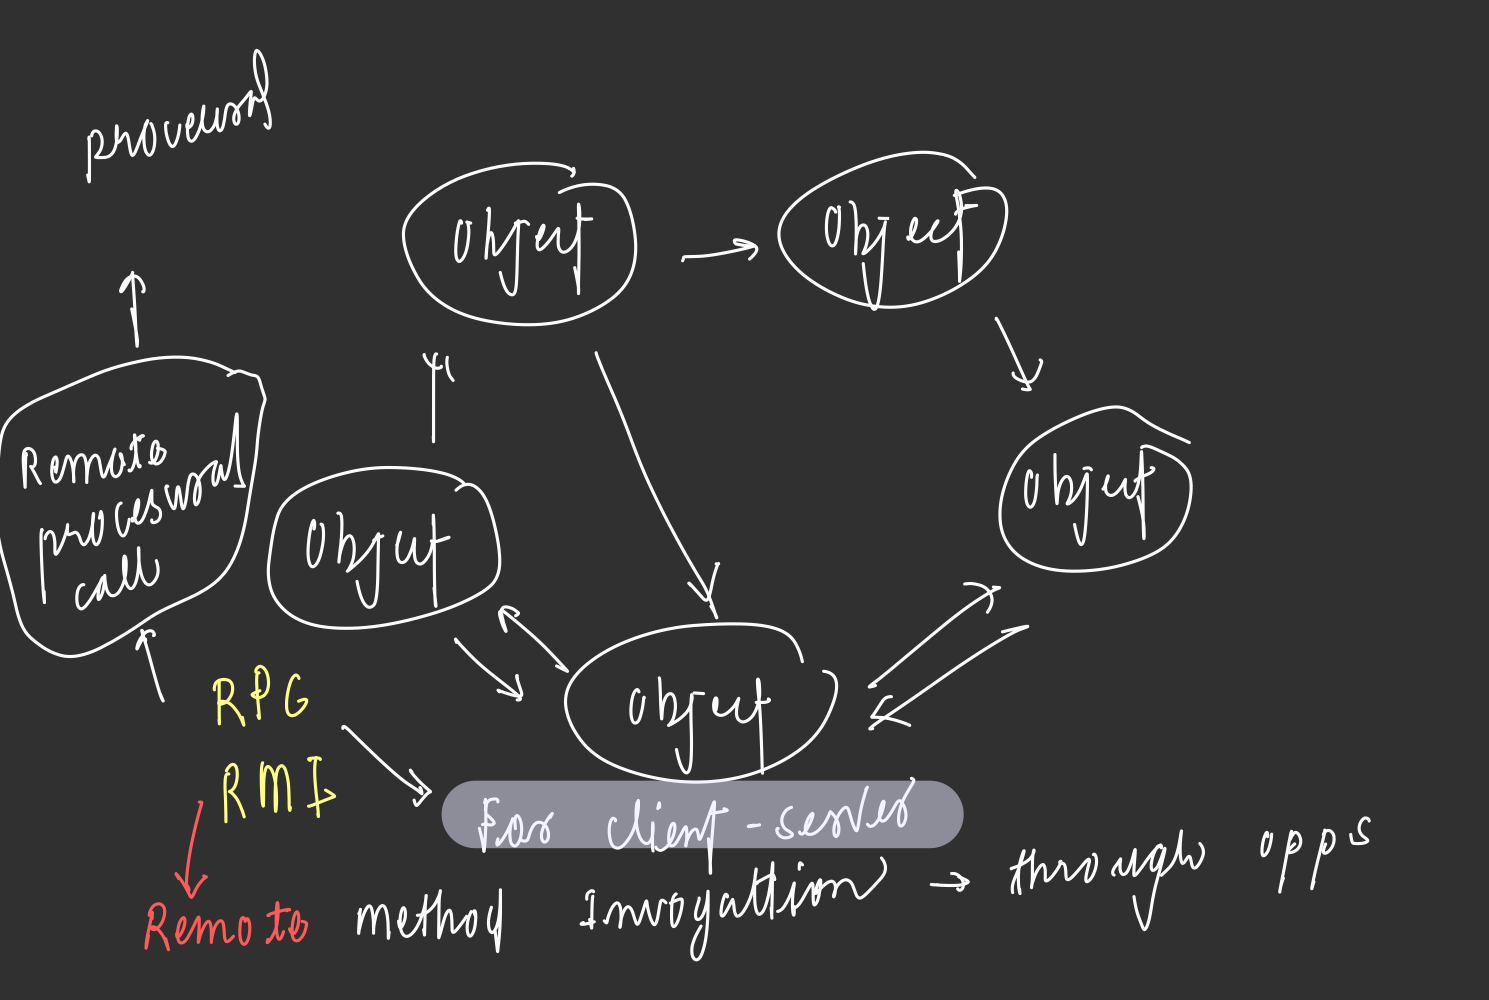 procedural
Object
Object
Remote
procesural
call
Object
Object
Object
RPG
RMI
For client-server
Remote method Invogattion → through opps